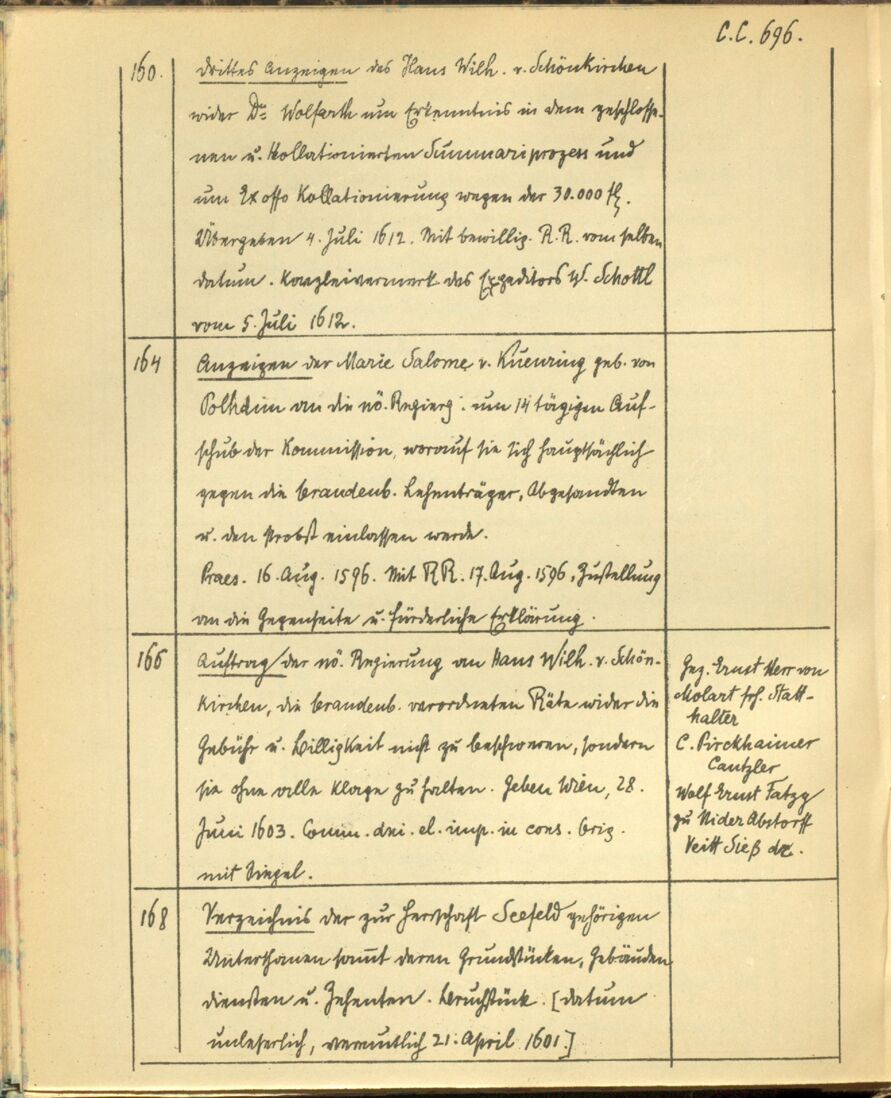 C.C. 696.
160. Drittes Anzeigen des Hans Wilh. v. Schönkirchen
wider Dr. Wolfarth um Erkenntnis in dem geschlosse-
nen u. Kollationierten Summariprozess und
um Ex offo Kollationierung wegen der 30.000 fl.
Übergeben 4. Juli 1612. Mit bewillig. R.R. vom selben
datum. Kanzleivermerk des Expeditors W. Schottl
vom 5. Juli 1612.
164 Anzeigen der Marie Salome v. Kuenring geb. von
Polheim an die nö. Regierg. um 14 tägigen Auf-
schub der Kommission, worauf sie sich hauptsächlich
gegen die brandenb. Lehenträger, Abgesandten
u. den Probst einlassen werde.
Praes. 16. Aug. 1596. Mit RR. 17. Aug. 1596, Zustellung
an die Gegenseite u. fürderliche Erklärung.
166 Auftrag der nö. Regierung an Hans Wilh. v. Schön-
kirchen, die brandenb. verordneten Räte wider die
Gebühr u. Billigkeit nicht zu beschweren, sondern
sie ohne alle Klage zu halten. Geben Wien, 28.
Juni 1603. Comm. dni. el. imp. in cons. Orig.
mit Siegel.
Gez. Ernst Herr von
Molart frh. Statt-
halter
C. Pirckhaimer
Cantzler
Wolf Ernst Fatzy
zu Nider Abstorff
Veitt Sieß dr.
168 Verzeichnis der zur Herrschaft Seefeld gehörigen
Unterthanen sammt deren Grundstücken, Gebäuden
diensten u. Zehenten. Bruchstück. [datum
unleserlich, vermutlich 21. April 1601.]